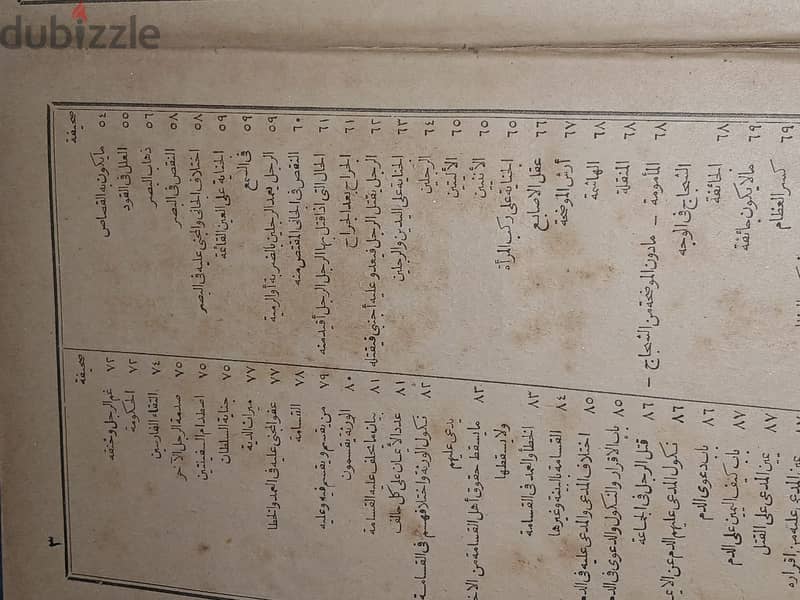 dubizzle
٣
صحيفة
٥٤ ما يكون به القصاص
٥٥ العلل فى القود
٥٦ ذهاب البصر
٥٨ النقص فى البصر
٥٨ اختلاف الجانى والمجنى عليه فى البصر
٥٩ الجناية على العين القائمة
٥٩ فى السمع
٥٩ الرجل يعمد الرجلين بالضربة أو الرمية
٦٠ النقص فى الجانى المقتص منه
٦١ الحال التى اذا قتل بها الرجل الرجل أقيد منه
٦١ الجراح بعد الجراح
٦٢ الرجل يقتل الرجل فيعدو عليه أجنبى فيقتله
٦٣ الجناية على اليدين والرجلين
٦٤ الرجلين
٦٥ الأليتين
٦٥ الأنثيين
٦٥ الجناية على ركب المرأة
٦٦ عقل الاصابع
٦٧ أرش الموضحة
٦٨ الهاشمة
٦٨ المنقلة
٦٨ المأمومة - مادون الموضحة من الشجاج -
الشجاج فى الوجه
٦٨ الجائفة
٦٩ مالا يكون جائفة
٦٩ كسر العظام
صحيفة
٧٢ غم الرجل وخنقه
٧٢ الحكومة
٧٤ التقاء الفارسين
٧٥ صدمة الرجل الآخر
٧٥ اصطدام السفينتين
٧٥ جناية السلطان
٧٧ ميراث الدية
٧٧ عفو المجنى عليه فى العمد والخطا
٧٨ القسامة
٧٩ من يقسم و يقسم فيه وعليه
٨٠ الورثة يقسمون
٨١ بيان ما يحلف عليه القسامة
٨١ عدد الأيمان على كل حالف
٨٢ نكول الورثة واختلافهم فى القسامة
يدعى عليهم
٨٣ ما يسقط حقوق أهل القسامة من
ولا يسقطها
٨٣ الخطأ والعمد فى القسامة
٨٤ القسامة بالبينة وغيرها
٨٥ اختلاف المدعى والمدعى عليه فى الدم
٨٥ باب الاقرار والنكول والدعوى فى الدم
٨٦ قتل الرجل فى الجماعة
٨٦ نكول المدعى عليهم بالدم عن
٨٦ باب دعوى الدم
٨٧ باب كيف اليمين على الدم
٨٧ يمين المدعى على القتل
يمين المدعى عليه من اقراره